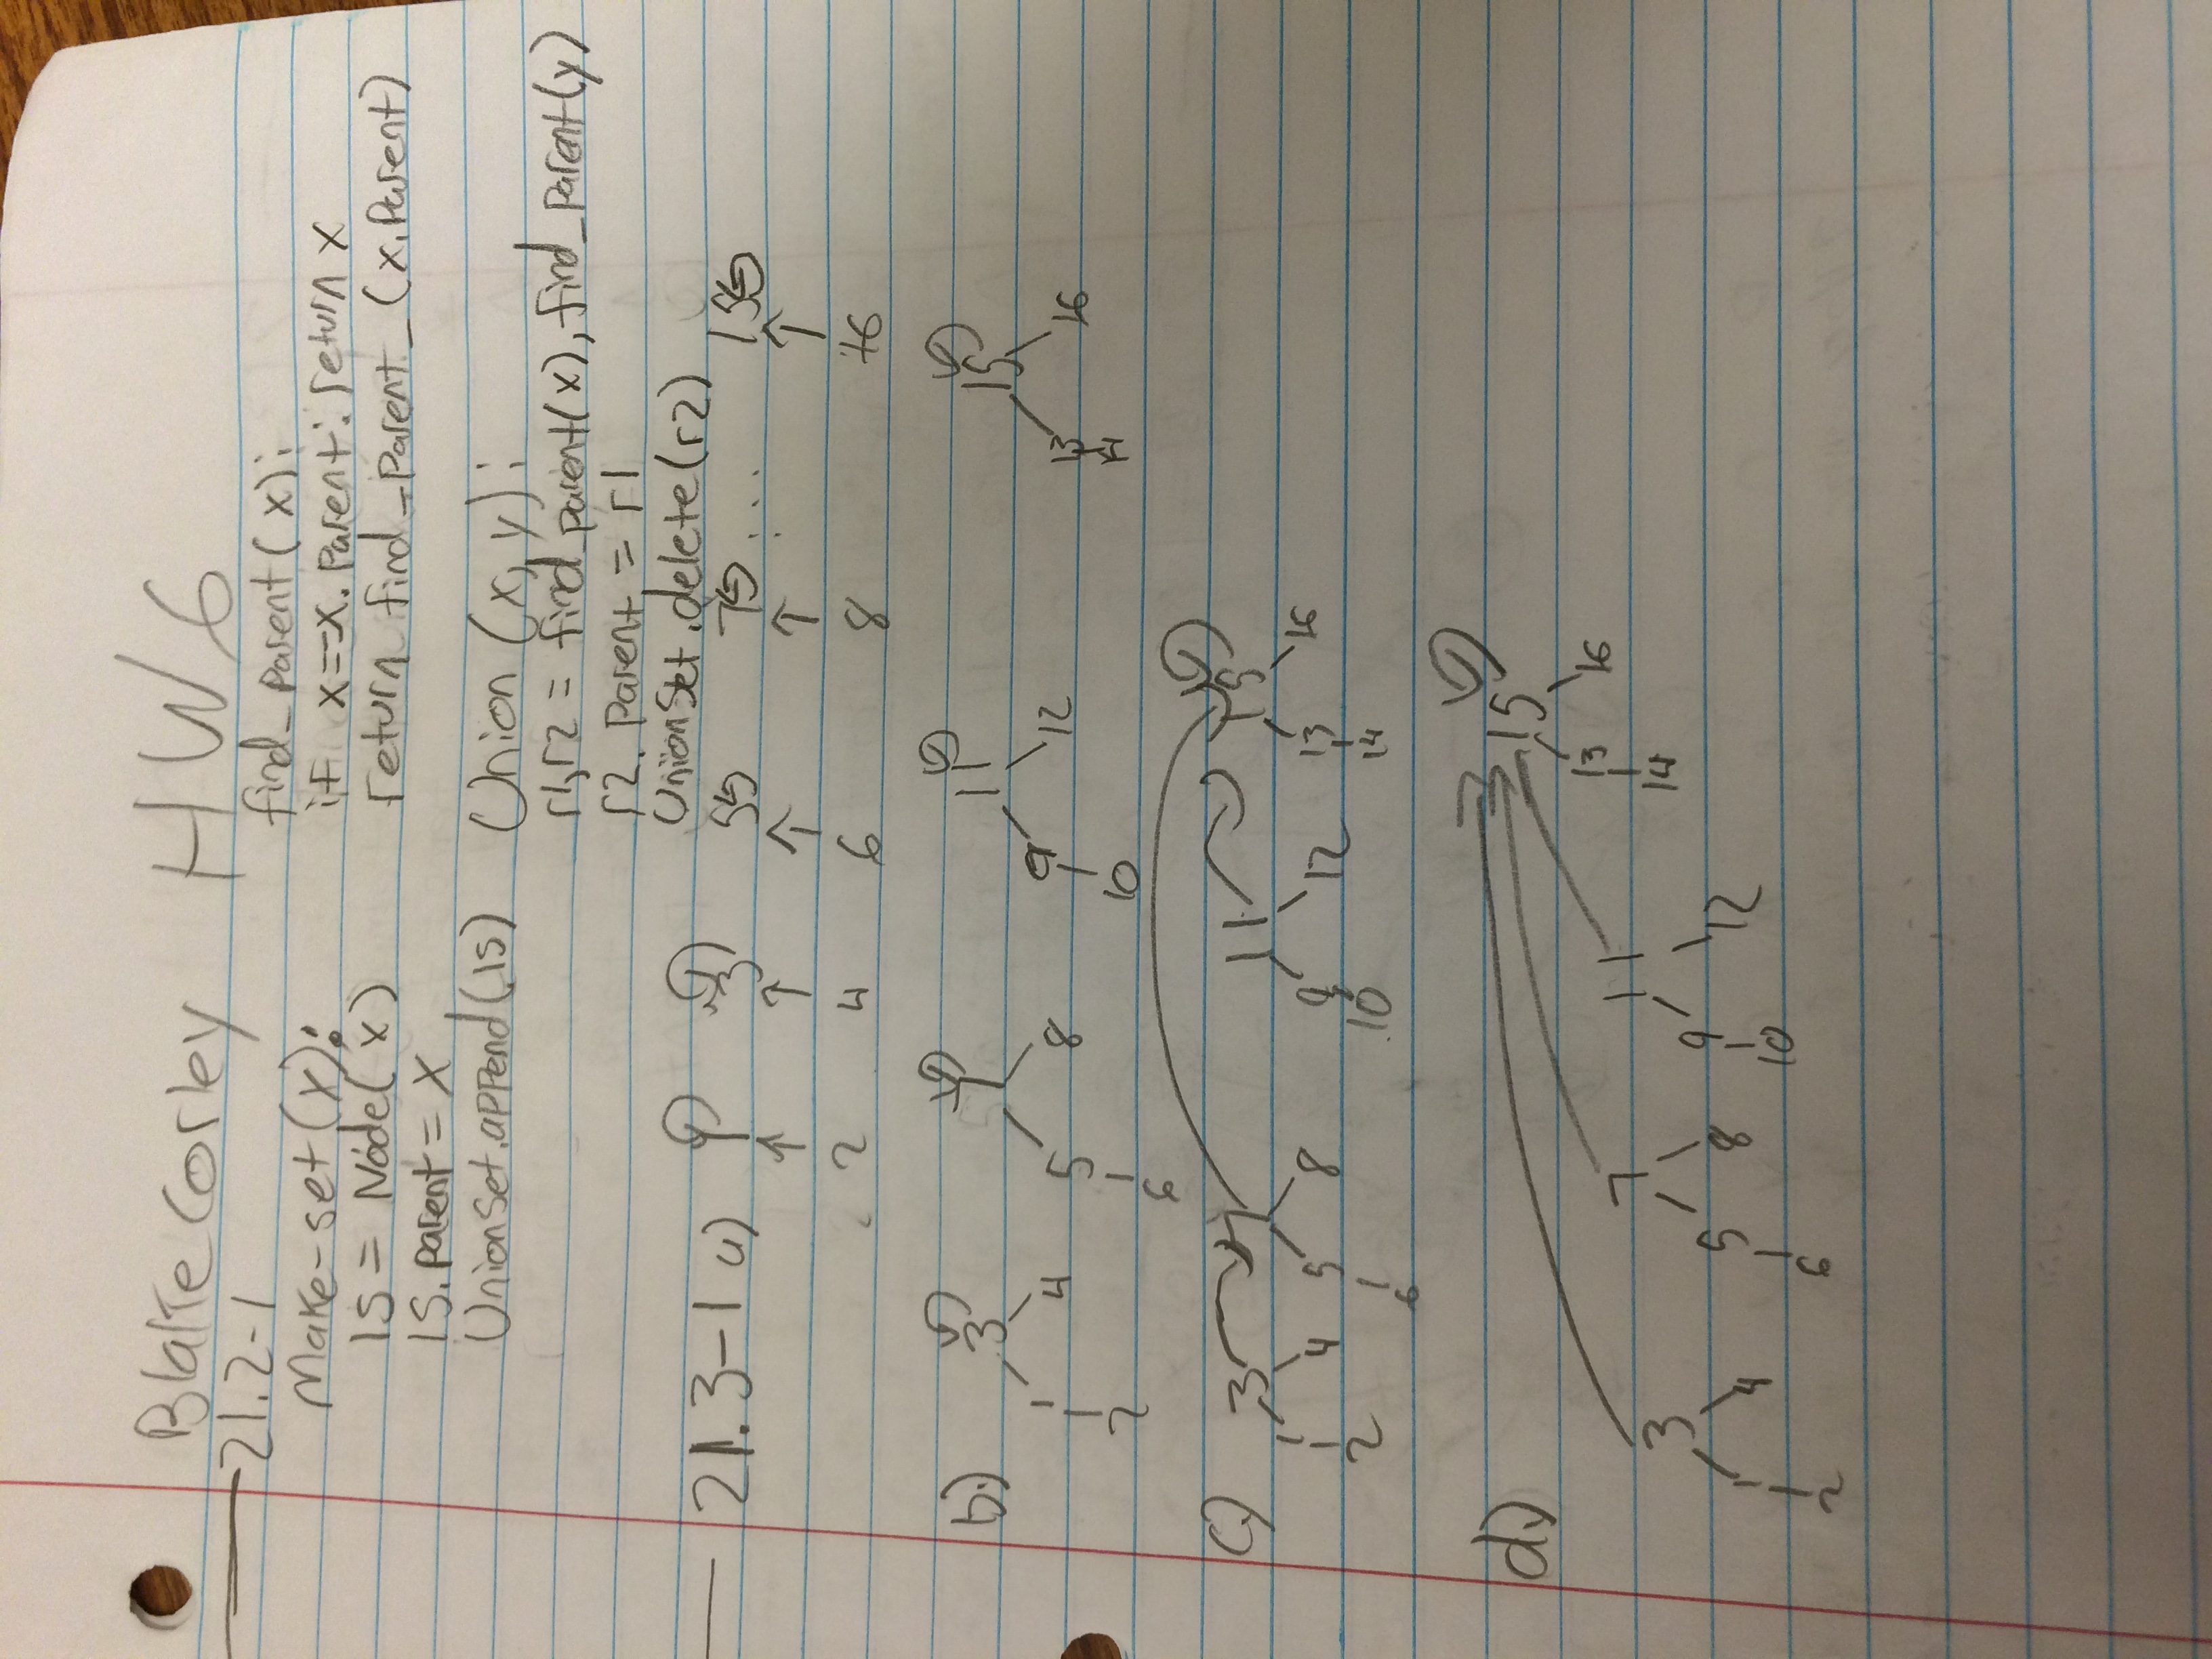 Blake Corley HW6
21.2-1
Make-set(x):
ls = Node(x)
ls.parent = x
UnionSet.append(ls)
find_parent(x):
if x==x.parent: return x
return find_parent_(x.parent)
Union (x,y):
r1,r2 = find_parent(x), find_parent(y)
r2.parent = r1
UnionSet.delete(r2)
21.3-1 a) 1 3 5 7 ... 15
2 4 6 8 16
b.) 3 7 11 15
1 4 5 8 9 12 13 16
2 6 10 14
c.) 3 7 11 15
1 4 5 8 9 12 13 16
2 6 10 14
d.) 15
13 16
3 7 11 14
1 4 5 8 9 12
2 6 10